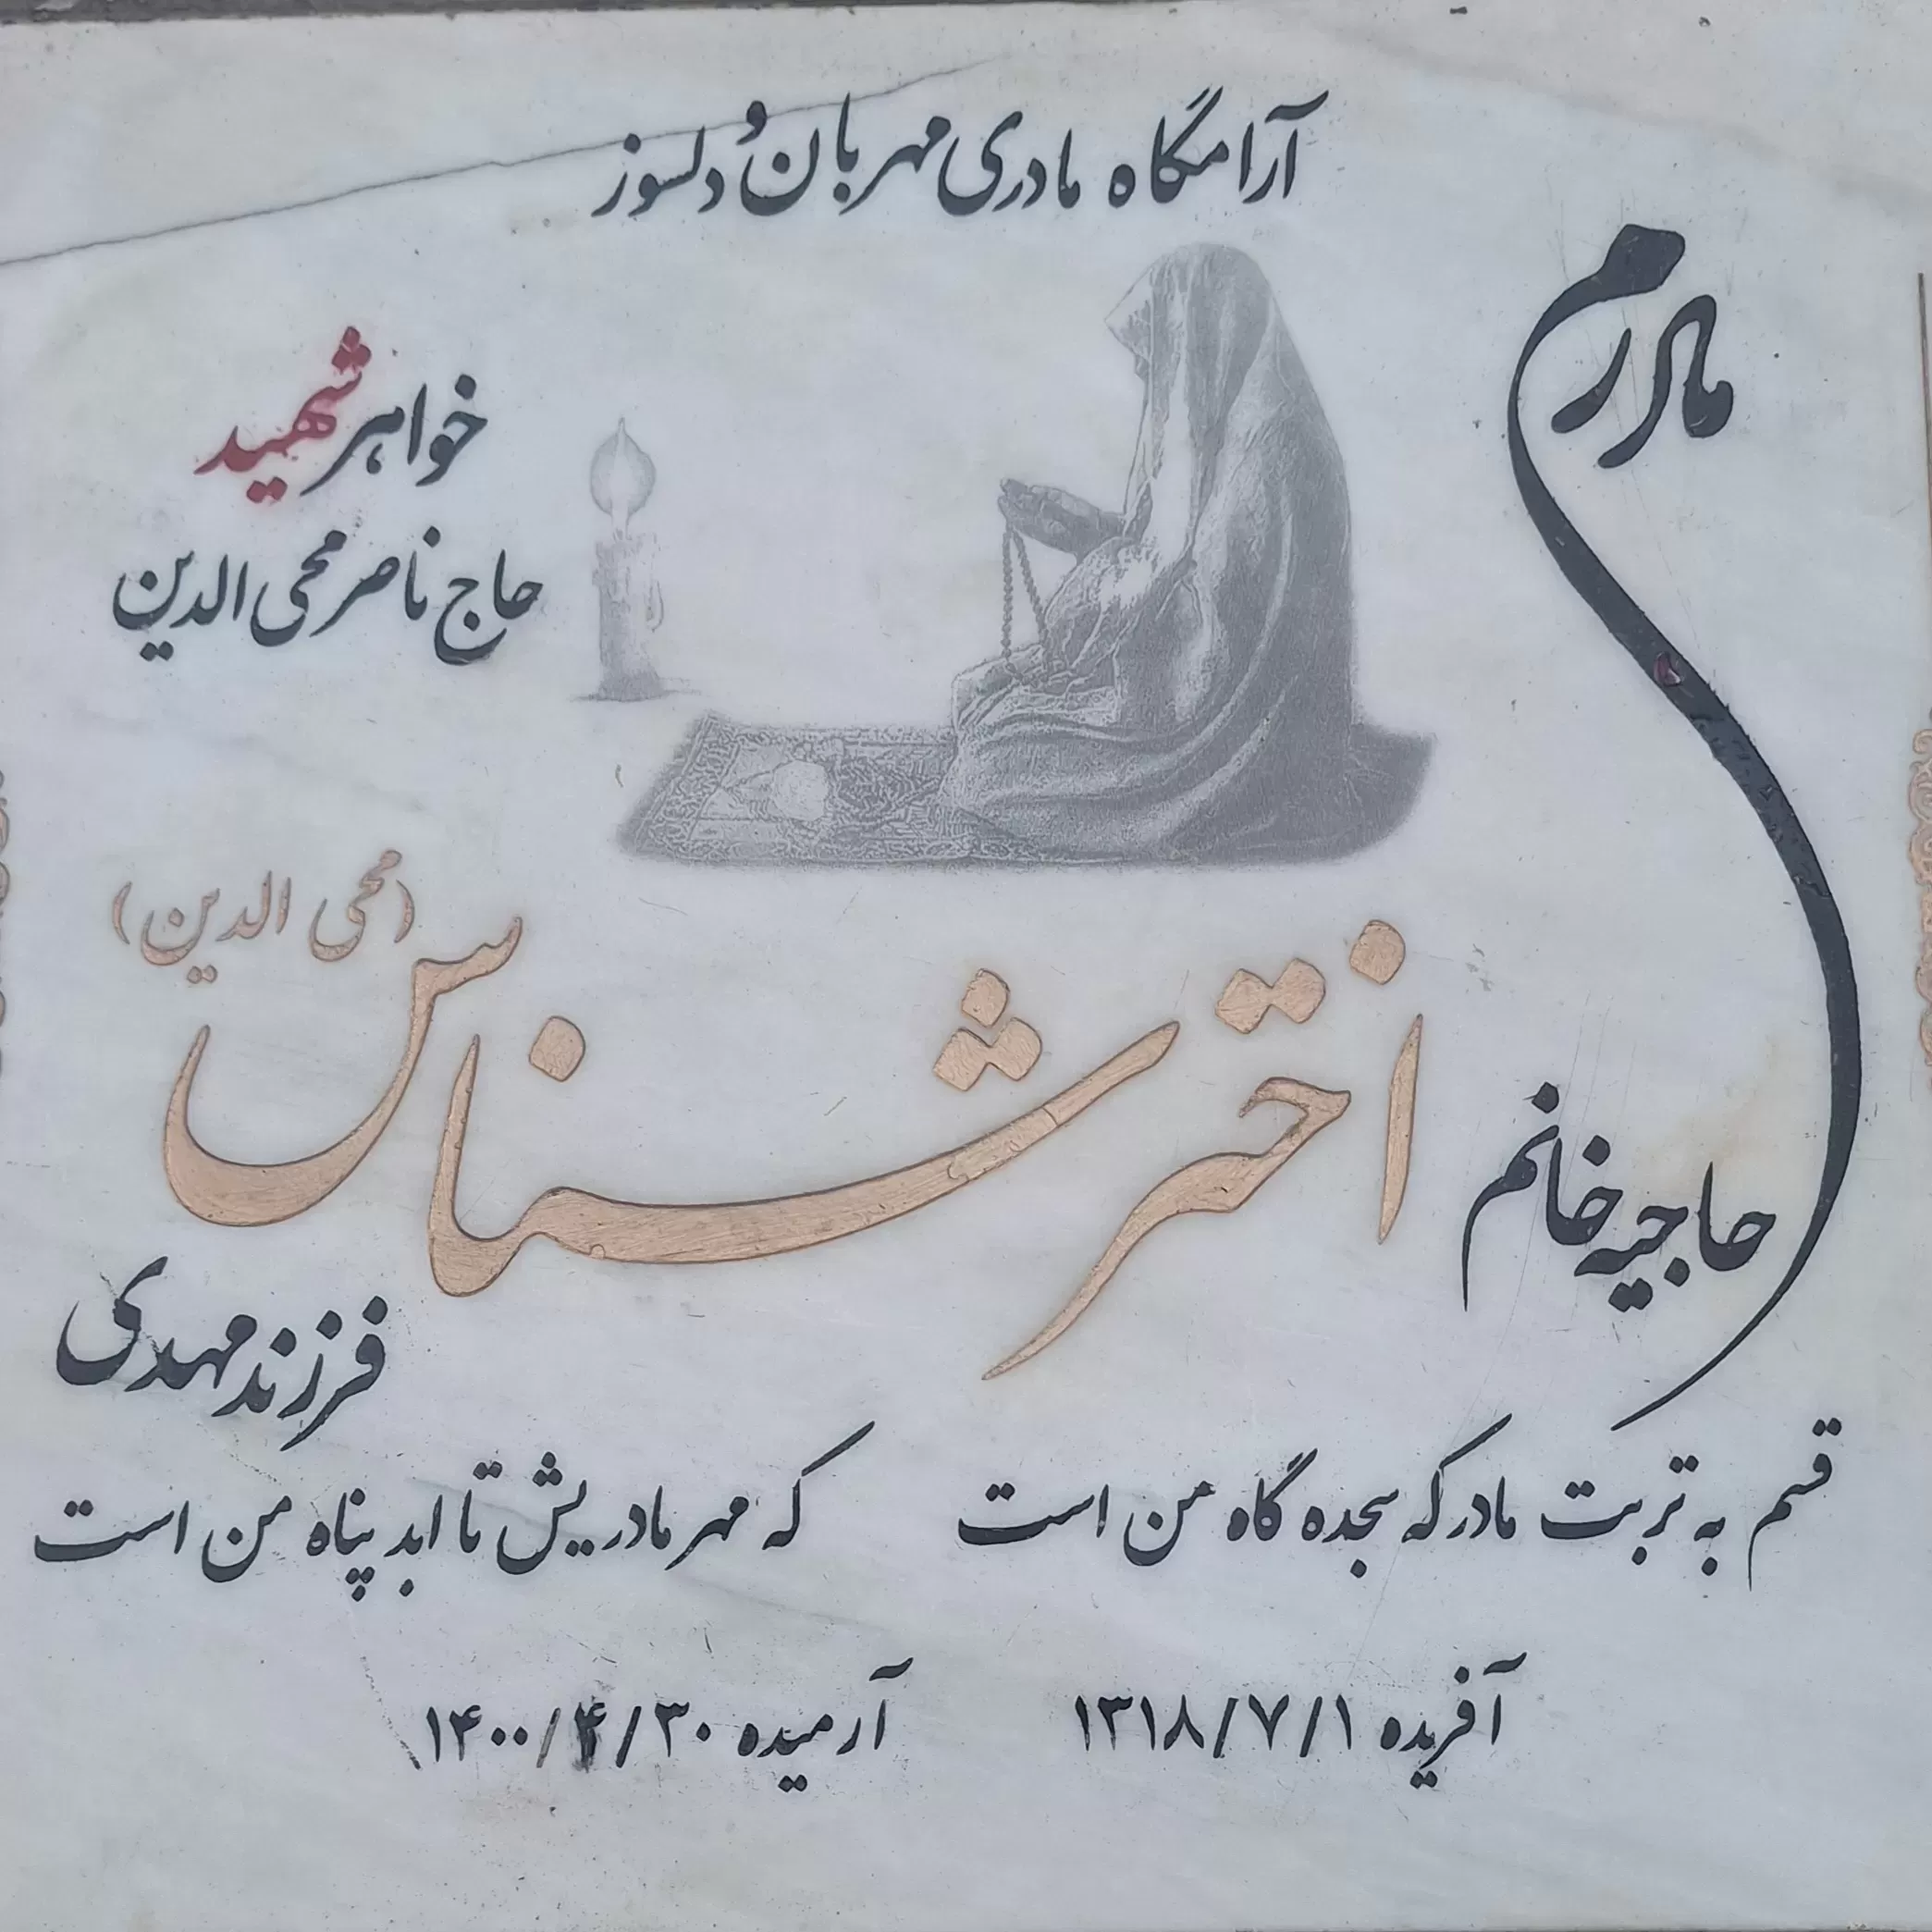 آرامگاه مادری مهربان و دلسوز
مادرم
خواهر شهید
حاج ناصر محی الدین
(محی الدین)
حاجیه خانم اختر شناس
فرزند مهدی
قسم به تربت مادر که سجده گاه من است که مهر مادریش تا ابد پناه من است
آفریده ۱۳۱۸/۷/۱ آرمیده ۱۴۰۰/۴/۳۰